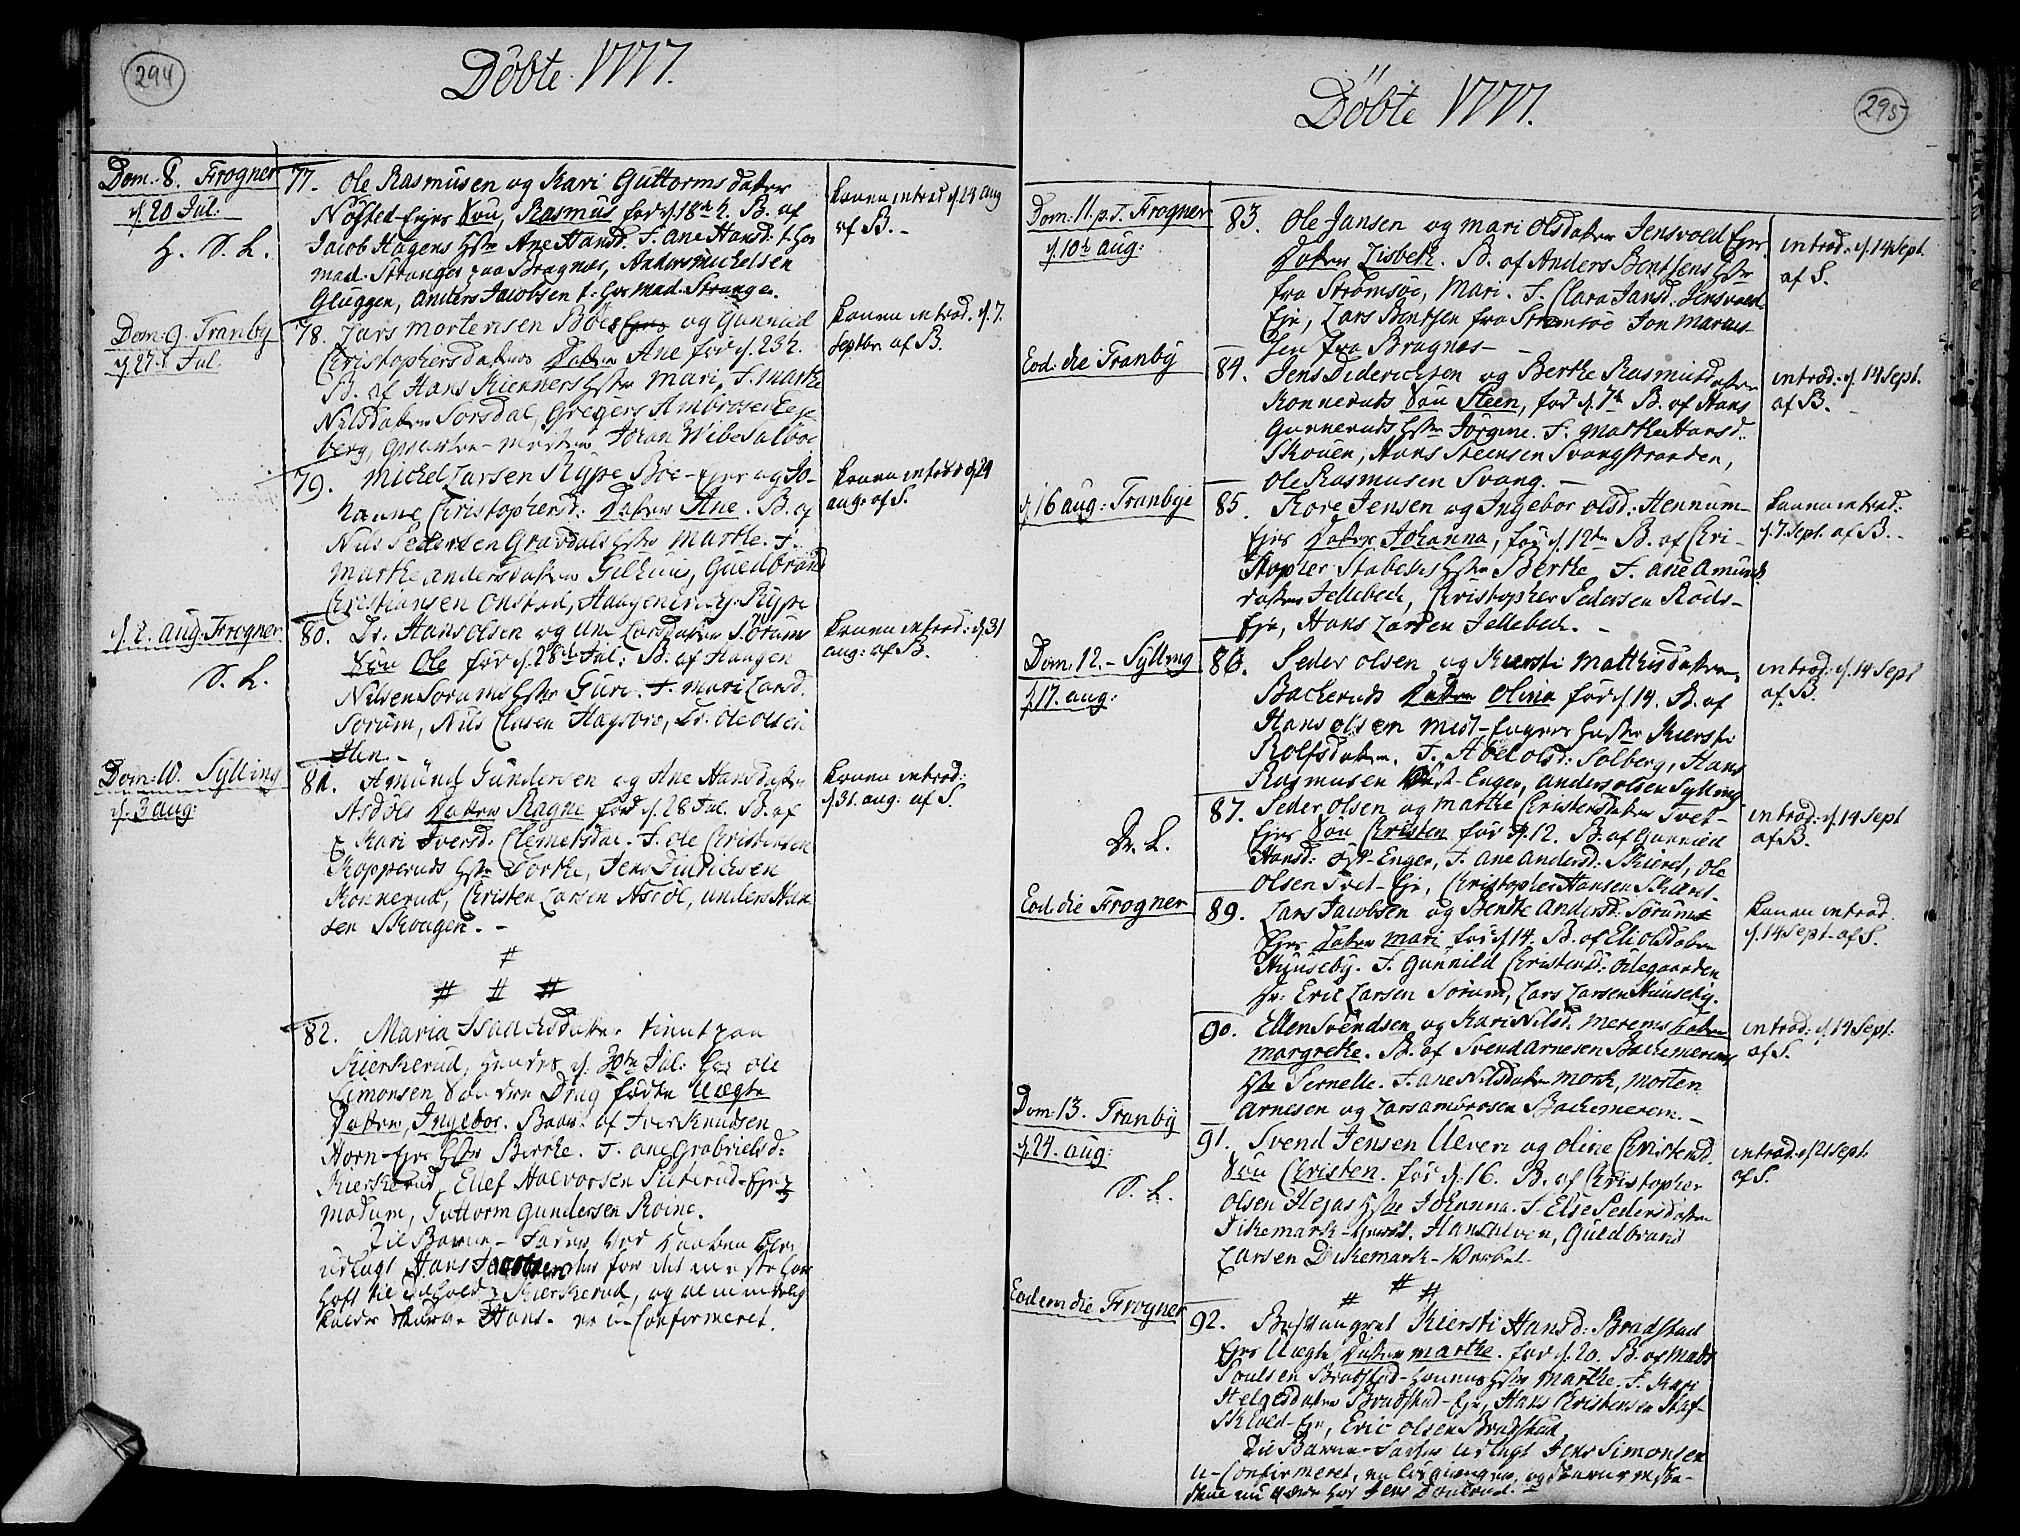 294
Döbte 1777.
Dom. 8. Frogner
d. 20 Jul:
H. S. L.
77. Ole Rasmusen og Kari Guttorms datter
Nøsted-Ejes Søn, Rasmus fød d. 18de h. B. af
Jacob Hagens Hstr Ane Hansd. F. Ane Hansd: t. hos
mad. Stranger paa Bragnæs, Anders Michelsen
Gluggen, Anders Jacobsen t. hos Mad. Strange.
Konen introd d. 24 Aug
af B. -
Dom. 9. Tranby
d. 27. Jul.
78. Lars Mortensen Böe og Gunnild
Christophersdatters Datter Ane fød d. 23 h.
B. af Hans Kienners Hstr Mari, F. Marthe
Nilsdatter Sorsdal, Gregers Ambrosen Eje
berg, Johan Wibe
Konen introd. d. 7.
Septbr af B.
79. Michel Larsen Rype Böe-Ejes og Jo-
hanne Christophersd: Datter Ane. B. af
Nils Pedersen Gravdals Hstr Marthe. F.
Marthe Andersdatter Gilhuus, Guldbrand
Christiansen Onstad, Haagen Rype
Konen introd d. 24
aug: af S.
d. 2. Aug. Frogner
S. L.
80. Sr. Hans Olsen og Une Larsdatter Sörums
Søn Ole fød d. 28de Jul: B. af Haagen
Nilsen Sørums Hstr Guri. F. Mari Larsd.
Sørum, Nils Clasen Hagsbro, Sr. Ole Olsen
Sten. -
Konen introd: d. 31
aug: af B.
Dom: 10. Sylling
d. 3 aug:
81. Amund Gundersen og Ane Hansdatter
Asdøls Datter Ragne fød d. 28 Jul. B. af
Kari Iversd: Clemetsdal. F. Ole Christensen
Kopperuds Hstr Dorthe, Jens Didrichsen
Konnerud, Christen Larsen Asdöl, Anders Han
sen Skougen. -
Konen introd:
d. 31. aug: af S.
#
# # #
82. Maria datter tient paa
Kierkerud, d. 30te Jul: hos Ole
Simonsen fødte Uægte
Datter, Ingebor. Baar: af Iver Knudsen
Horn-Ejes Hstr Birthe. F. Ane Gabrielsd:
Kierkerud, Ellef Halvorsen Ejer
Modum, Guttorm Gundersen Roine.
Til Barne-Fader ved Daaben blev
udlagt Hans
Kierkerud,
Hans. er u-Confirmeret.
295
Döbte 1777.
Dom: 11. p. T. Frogner
d. 10de aug:
83. Ole Jansen og Mari Olsdatter Jensvold Ejes
Datter Lisbeth. B. af Anders Bentsens Hstr
fra Strømsøe, Mari. F. Clara Jansd: Jensvold
Eje, Lars Bentsen fra Strømsøe Jon Marcus
sen fra Bragnæs -
introd: d. 14 Sept
af S.
Eod. die Tranby
84. Jens Diderichsen og Berthe Rasmusdatter
Konneruds Søn Steen, fød d. 7de B. af Hans
Gunneruds Hstr Jørgine. F. Marthe Hansd.
Skouen, Hans Steensen Svangstranden,
Ole Rasmusen Svang. -
introd: d. 14 Sept.
af B. -
d. 16 aug: Tranbye
85. Tore Jensen og Ingebor Olsd: Hennum-
Ejes Datter Johanna, fød d. 12te B. af Chri-
stopher Stabeks Hstr Berthe F. Ane Amunds
datter Jellebech, Christopher Pedersen Röds-
Eje, Hans Larsen Jellebech. -
Konen introd:
d. 7. Sept. af B. -
Dom: 12. - Sylling
d. 17. aug:
86. Peder Olsen og Kiersti Mathisdatter
Bacheruds Datter Olina fød d. 14. B. af
Hans Olsen Midt-Engers Hustr Kiersti
Rolfsdatter. F. Abel Olsd: Solberg, Hans
Rasmusen Øst-Enger, Anders Olsen Sylling
introd: d. 14 Sept
af B.
S. L.
87. Peder Olsen og Marthe Christensdatter Tvet-
Ejes Søn Christen fød d. 12. B. af Gunnild
Hansd: Øst-Enger, F. Ane Andersd: Skieret, Ole
Olsen Tvet-Eje, Christopher Hansen Skieret.
introd: d. 14 Sept
af B.
Eod. die Frogner
89. Lars Jacobsen og Benthe Andersd: Sørums
Ejes Datter Mari fød d. 14. B. af Eli Olsdatter
Huuseby. F. Gunnild Christensd: Ödegaarden
Sr: Eric Larsen Sørum, Lars Larsen Huuseby.
Konen introd.
d. 14 Sept. af S.
90. Ellen Svendsen og Kari Nilsd. Merems Datter
Margrethe. B. af Svend Arnesen Bachemerems
Hstr Pernelle. F. Ane Nilsdatter Mork, Morten
Arnesen og Lars Ambrosen Bachemerem. -
introd: d. 14 Sept.
af S.
Dom. 13. Tranby
d. 24. aug:
S. L.
91. Svend Jensen Ulven og Oline Christensd.
Søn Christen. fød d: 16. B. af Christopher
Olsen Hegas Hstr Johanna. F. Else Pedersdatter
Dikemark-Verket, Hans Ulven, Guldbrand
Larsen Dikemark-Verket.
introd. d. 21 Sept.
af S.
# # #
Eodem die Frogner
92. Besvangret Kiersti Hansd: Bradstad
Ejes Uægte Datter Marthe. fød d. 20. B. af Mads
Poulsen Bradstad- Hstr Marthe. F. Kari
Helgesdatter Bradstad-Eje, Hans Christensen Staf-
skiold-Eje, Eric Olsen Bradstad.
Til Barne-Fader udlagt Jens Simonsen
u-Confirmeret,
nu er hos Jens